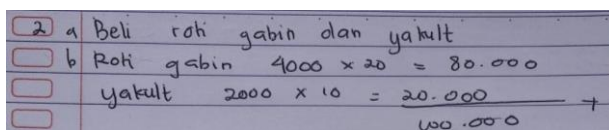 2 a Beli roti gabin dan yakult
b Roti gabin 4000 × 20 = 80.000
yakult 2000 × 10 = 20.000 +
100.000